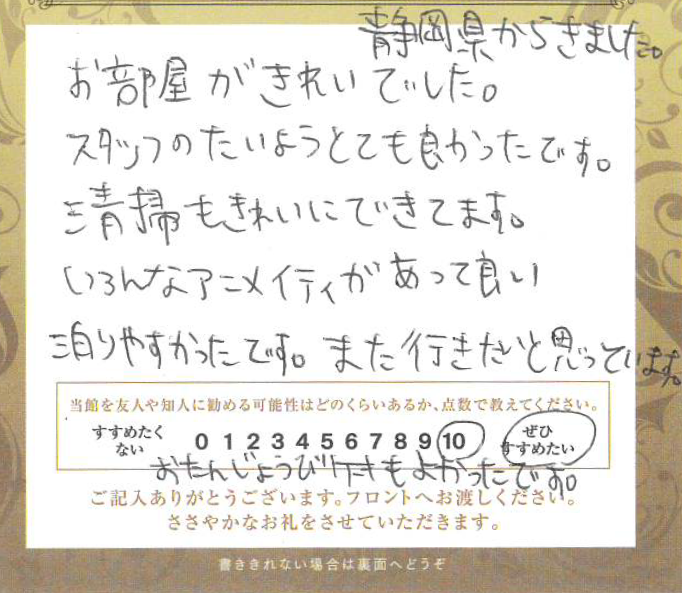 静岡県からきました。
お部屋がきれいでした。
スタッフのたいようとても良かったです。
清掃もきれいにできてます。
いろんなアニメイティがあって良い
泊りやすかったです。また行きたいと思っています。
当館を友人や知人に勧める可能性はどのくらいあるか、点数で教えてください。
すすめたくない 0 1 2 3 4 5 6 7 8 9 10 ぜひすすめたい
おたんじょうび もよかったです。
ご記入ありがとうございます。フロントへお渡しください。
ささやかなお礼をさせていただきます。
書ききれない場合は裏面へどうぞ